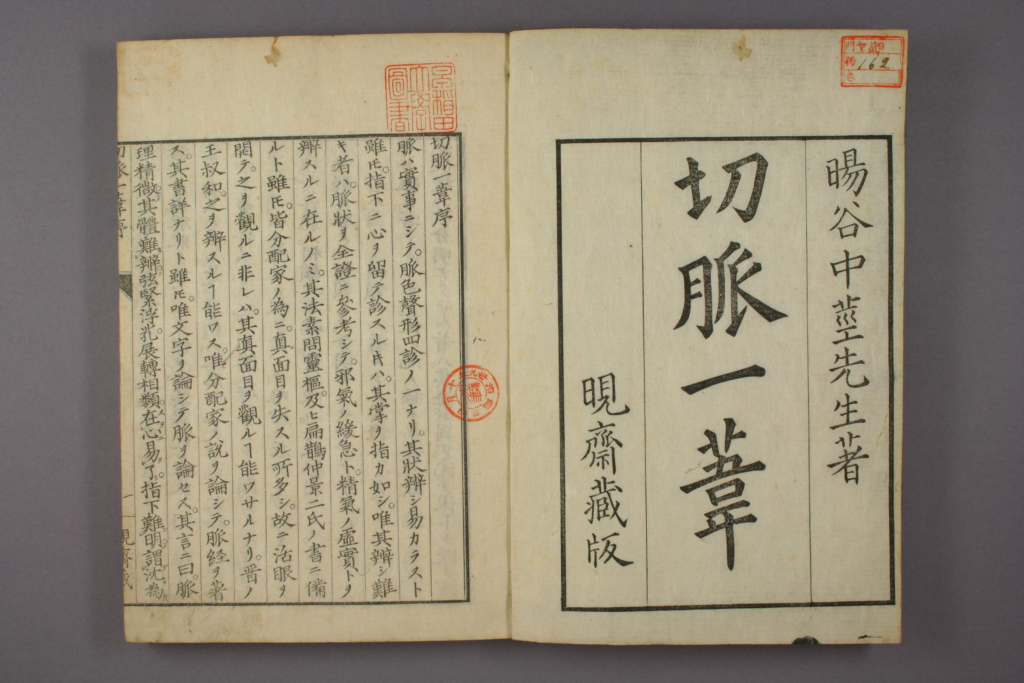 暘谷中莖先生著
切脈一葦
晛齋藏版
162
早稲田大学図書
切脈一葦序
脈ハ實事ニシテ。脈色聲形四診ノ一ナリ。其狀辨シ易カラスト
雖𪜈。指下ニ心ヲ留テ診スル𪜈ハ。其掌ヲ指カ如シ。唯其辨シ難
キ者ハ。脈狀ヲ全證ニ參考シテ。邪氣ノ緩急ト。精氣ノ虛實トヲ
辨スルニ在ルノミ。其法素問靈樞。及ヒ扁鵲仲景二氏ノ書ニ備
ルト雖𪜈。皆分配家ノ為ニ。真面目ヲ失スル所多シ。故ニ活眼ヲ
開テ。之ヲ觀ルニ非レハ。其真面目ヲ觀ルヿ能ワサルナリ。晋ノ
王叔和。之ヲ辨スルヿ能ワス。唯分配家ノ說ヲ論シテ。脈經ヲ著
ス。其書詳ナリト雖𪜈。唯文字ヲ論シテ。脈ヲ論セス。其言ニ曰。脈
理精微。其體難辨。弦緊浮芤。展轉相類。在心易了。指下難明。謂沈為
切脈一葦序
一